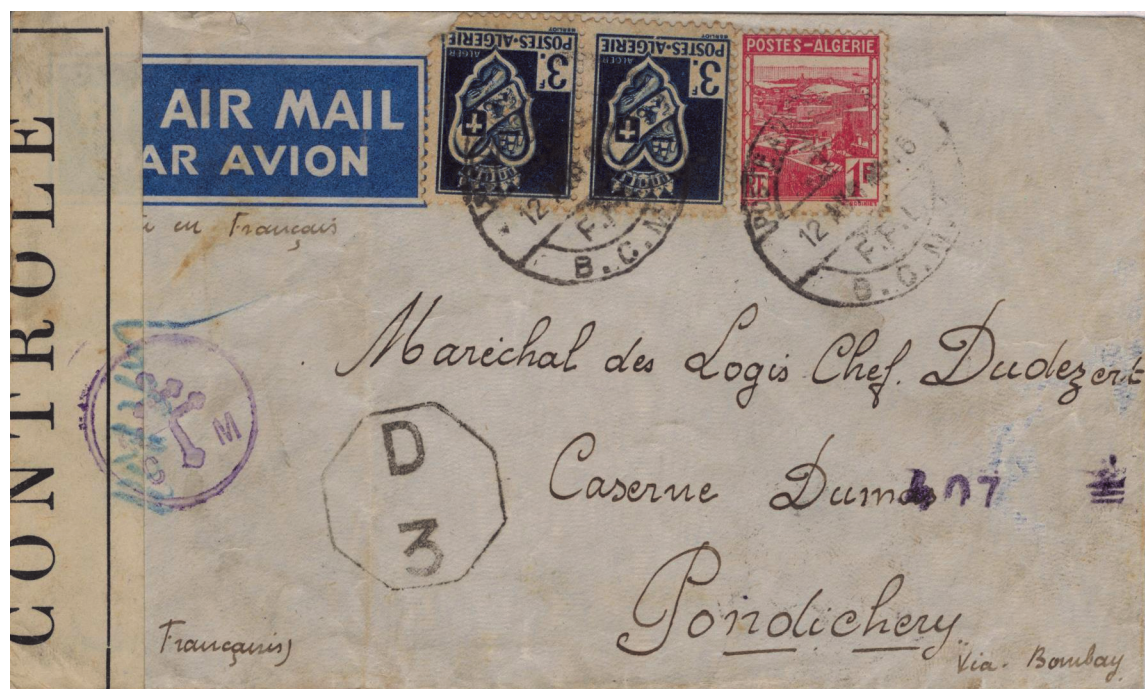 CONTROLE
AIR MAIL
AR AVION
POSTES-ALGERIE
ALGER
3F
POSTES-ALGERIE
ALGER
3F
POSTES-ALGERIE
1F
12
B.C.M.
12
F.F.L
B.C.M.
en Français
Maréchal des Logis Chef. Dudezert
S M
D
3
Caserne Dumas
407
Pondichery
Via. Bombay
Français)